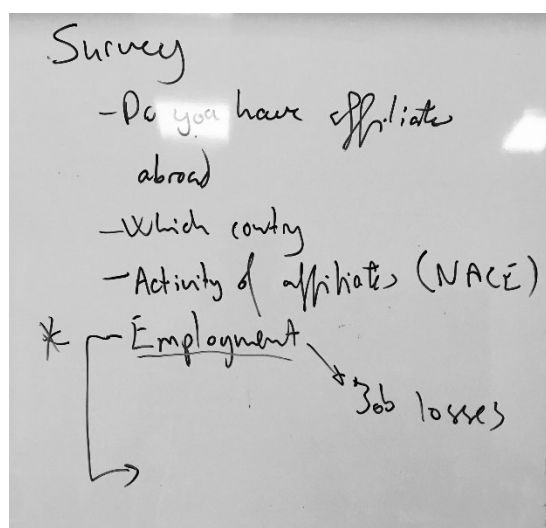 Survey
- Do you have affiliates
abroad
- Which contry
- Activity of affiliates (NACE)
* - Employment
Job losses